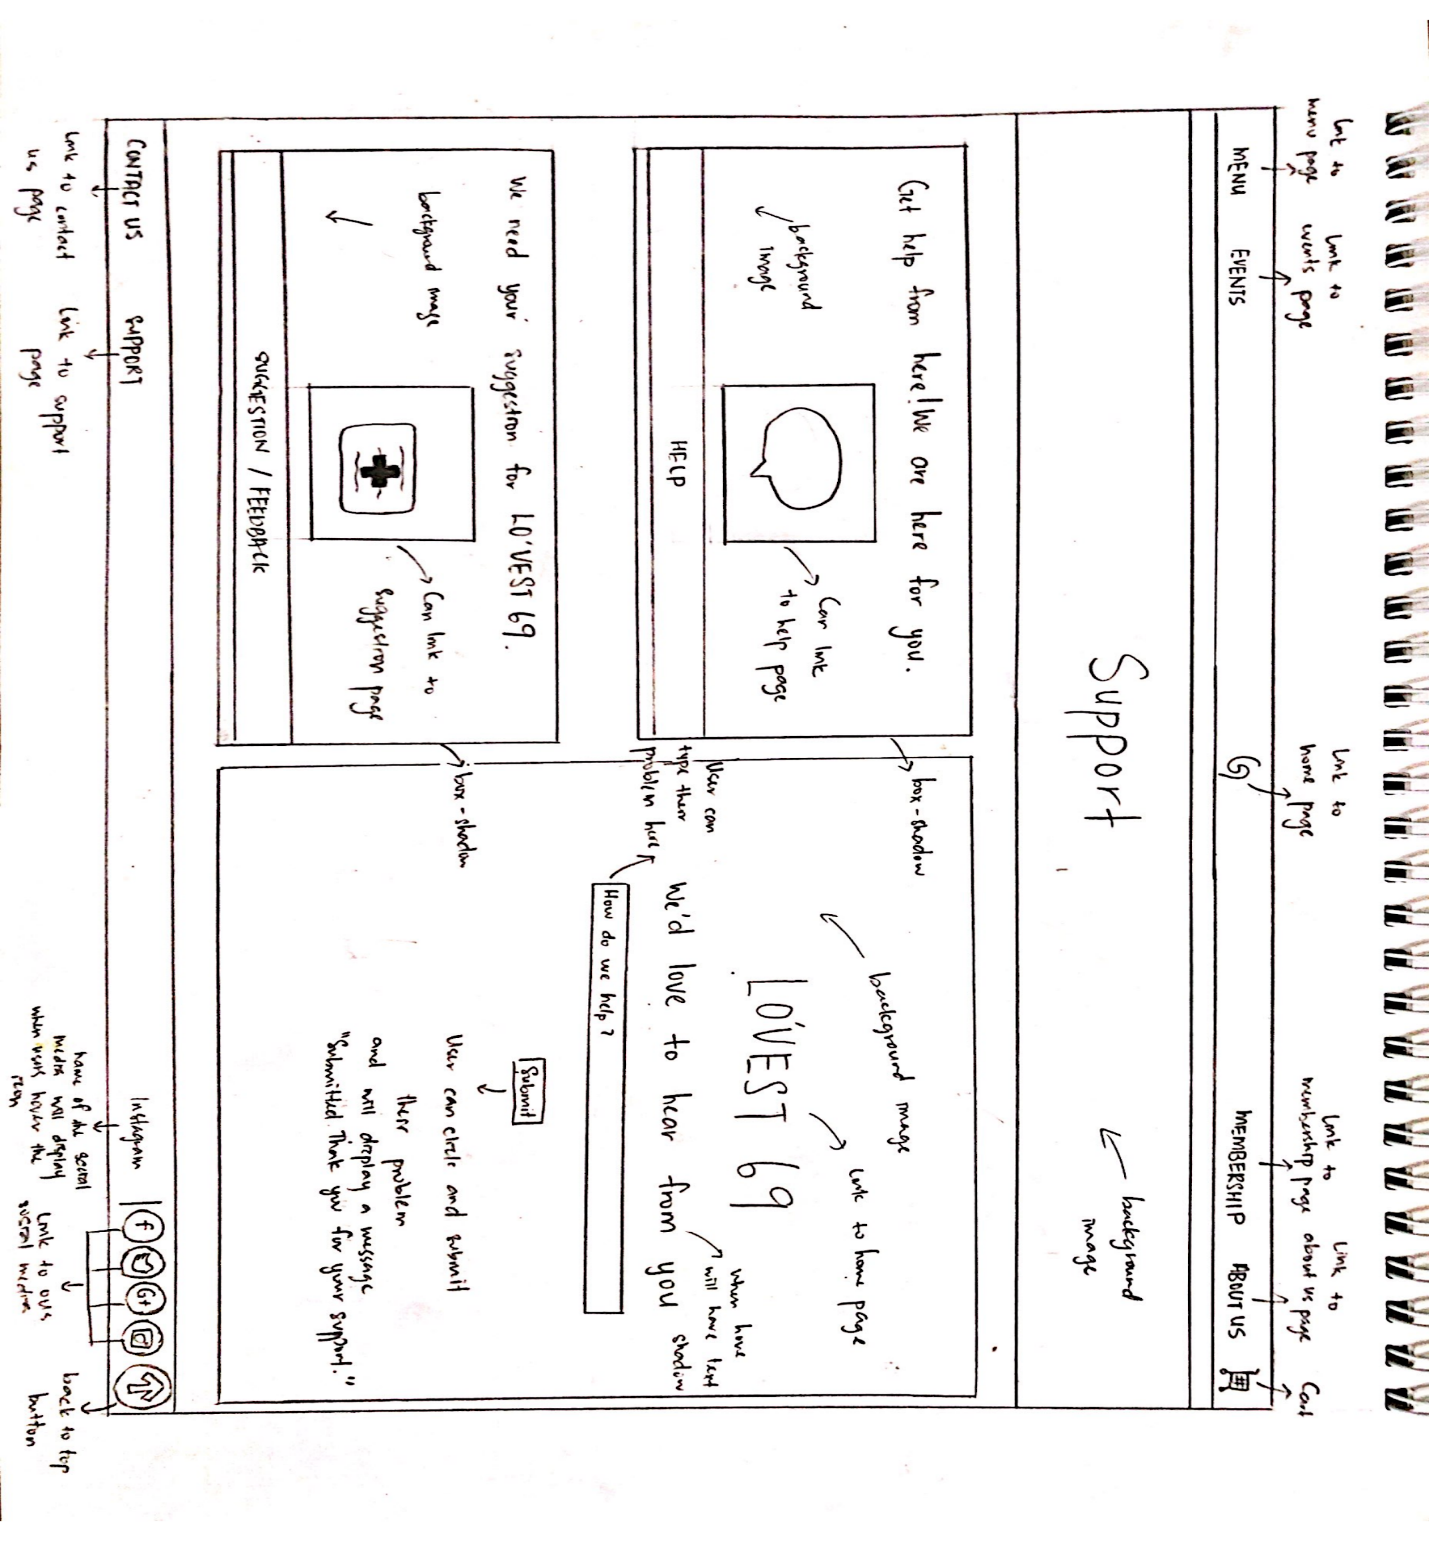 Link to
menu page
Link to
events page
Link to
home page
Link to
membership page
Link to
about us page
Cart
MENU
EVENTS
MEMBERSHIP
ABOUT US
Support
background
image
Get help from here! We are here for you.
background
image
Can link
to help page
HELP
box-shadow
We need your suggestion for LO'VEST 69.
background image
Can link to
suggestion page
SUGGESTION / FEEDBACK
box-shadow
background image
LO'VEST 69
Link to home page
We'd love to hear from you
when hove
will have text
shadow
User can
type their
problem here
How do we help?
Submit
User can circle and submit
their problem
and will display a message
"Submitted. Thank you for your support."
CONTACT US
SUPPORT
Instagram
f
G+
Link to contact
us page
Link to support
page
name of the social
media will display
when users hover the
icon
Link to ous
social media
back to top
button